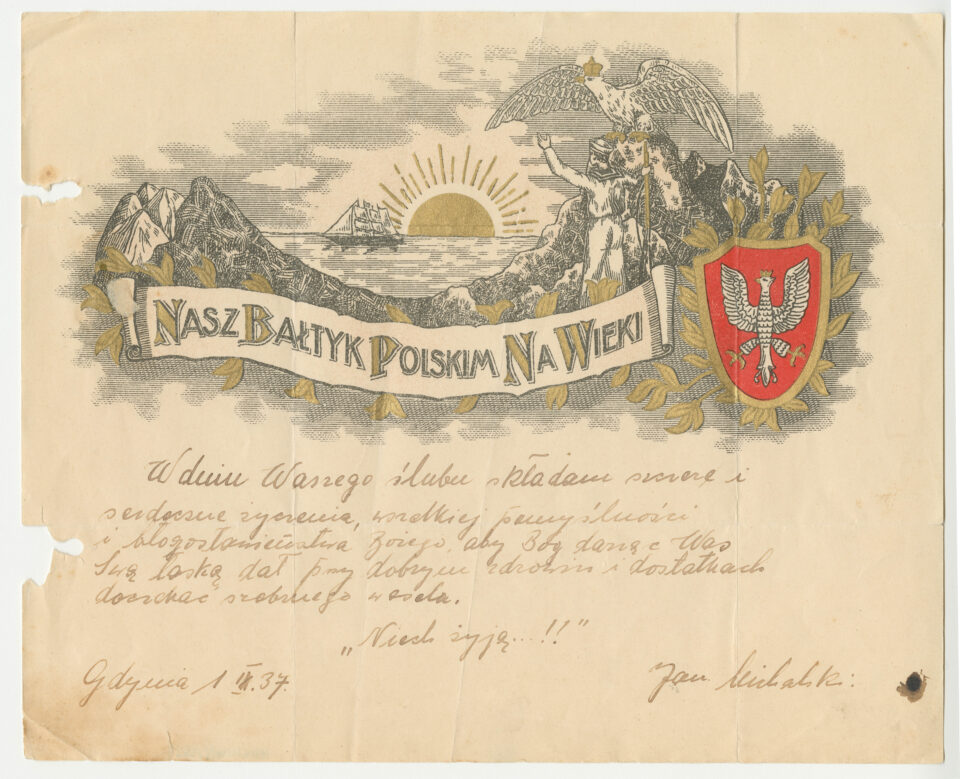 NASZ BAŁTYK POLSKIM NA WIEKI
W dniu Waszego ślubu składam szczere i
serdeczne życzenia, wszelkiej pomyślności
i błogosławieństwa Bożego, aby Bóg darząc Was
Swą łaską dał przy dobrym zdrowiu i dostatkach
doczekać srebrnego wesela.
„Niech żyją...!!"
Gdynia 1 37.
Jan Michalski.